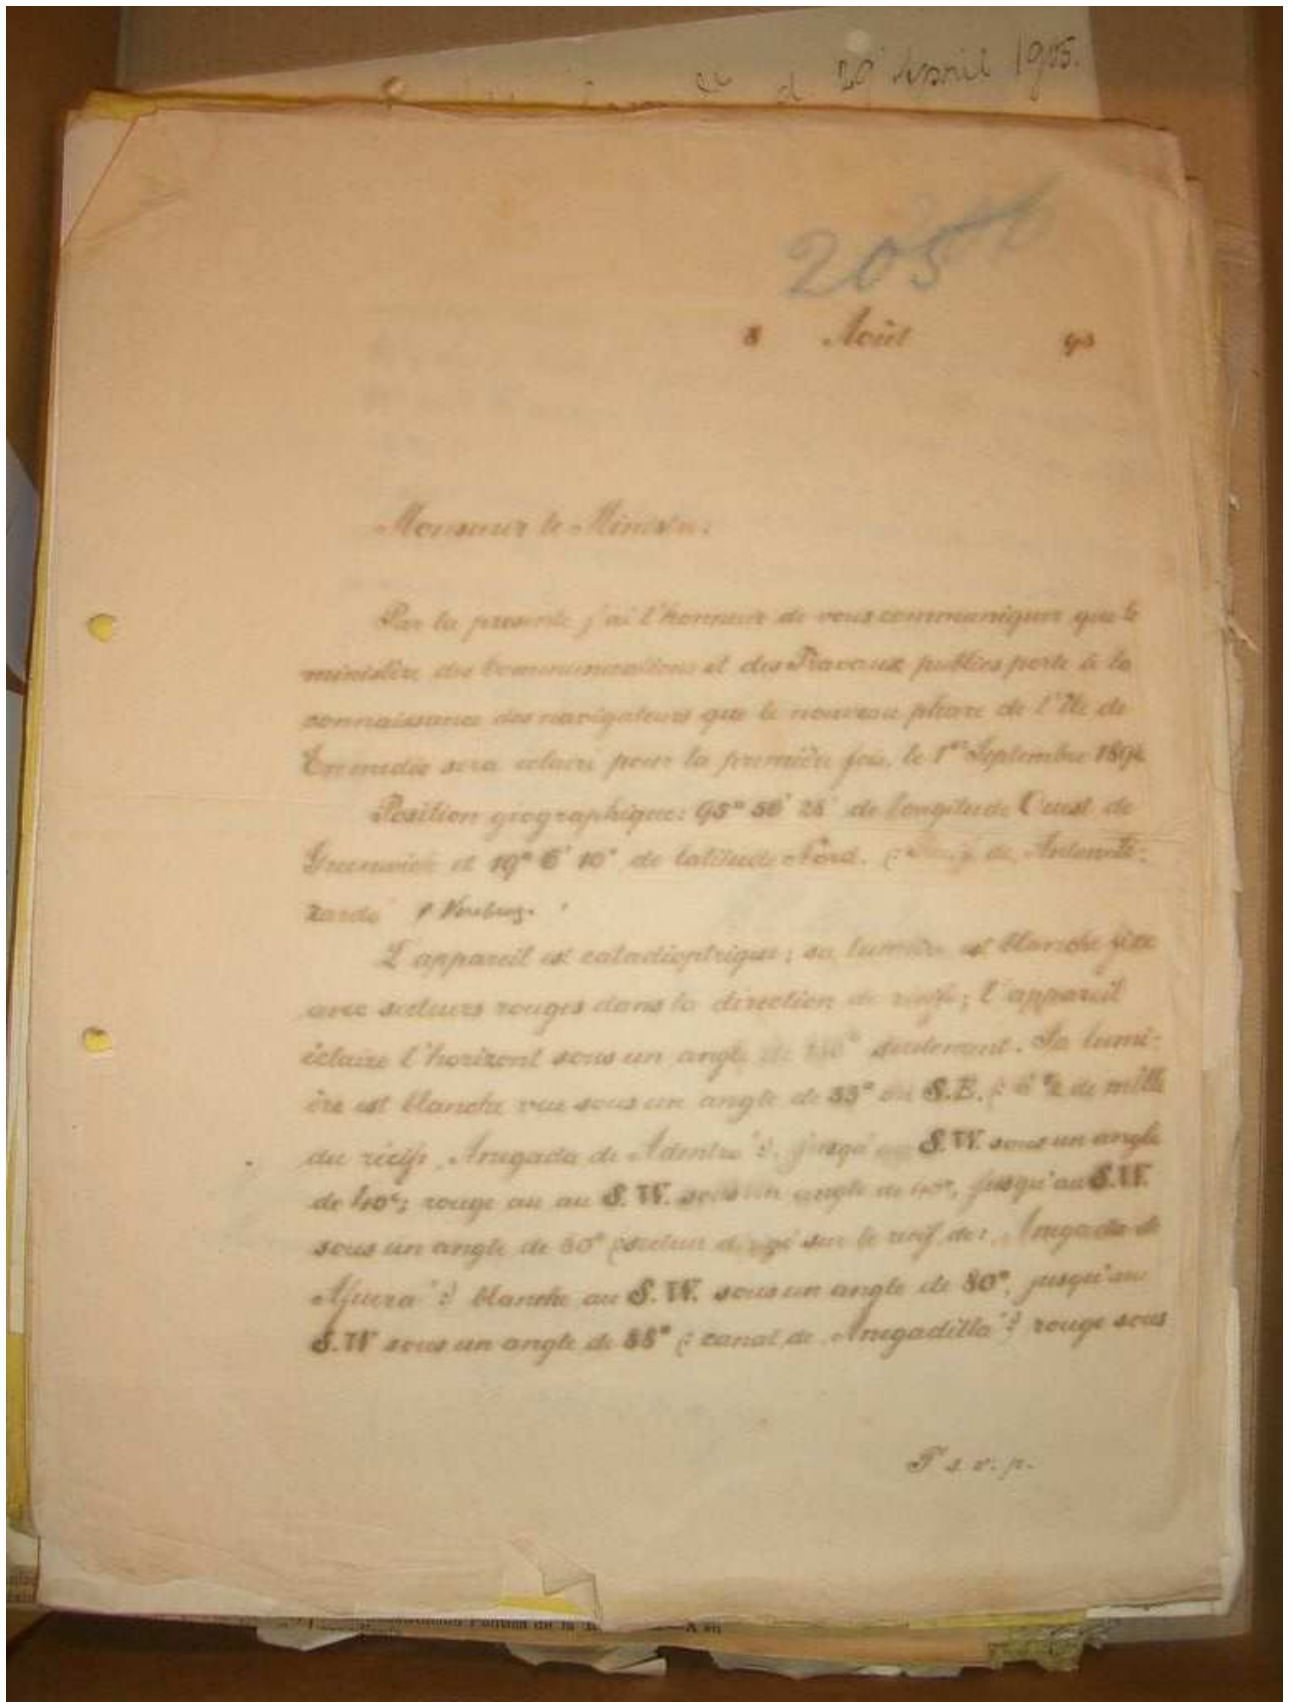 29 April 1905.
205
8 Août 93
Monsieur le Ministre:
Par la presente j'ai l'honneur de vous communiquer que le
ministère des Communications et des Travaux publics porte à la
connaissance des navigateurs que le nouveau phare de l'Ile de
Enmedio sera éclairé pour la première fois, le 1er Septembre
Position géographique: 95° 56' 28" de longitude Ouest de
Greenwich et 19° 6' 10" de latitude Nord. de Antonli-
zardo
L'appareil est catadioptrique; sa lumière est blanche fixe
avec secteurs rouges dans la direction de récifs; l'appareil
éclaire l'horizont sous un angle de seulement. Sa lumi-
ère est blanche vue sous un angle de 33° au S.E. de mille
du récif „Anegada de Adentro": jusqu'au S.W. sous un angle
de 40°; rouge au au S.W. sous un angle de 40°, jusqu'au S.W.
sous un angle de 60° (secteur dirigé sur le récif de: „Anegada de
Afuera":) blanche au S.W. sous un angle de 80°, jusqu'au
S.W sous un angle de 88° (: canal de „Anegadilla":) rouge sous
T s. v. p.